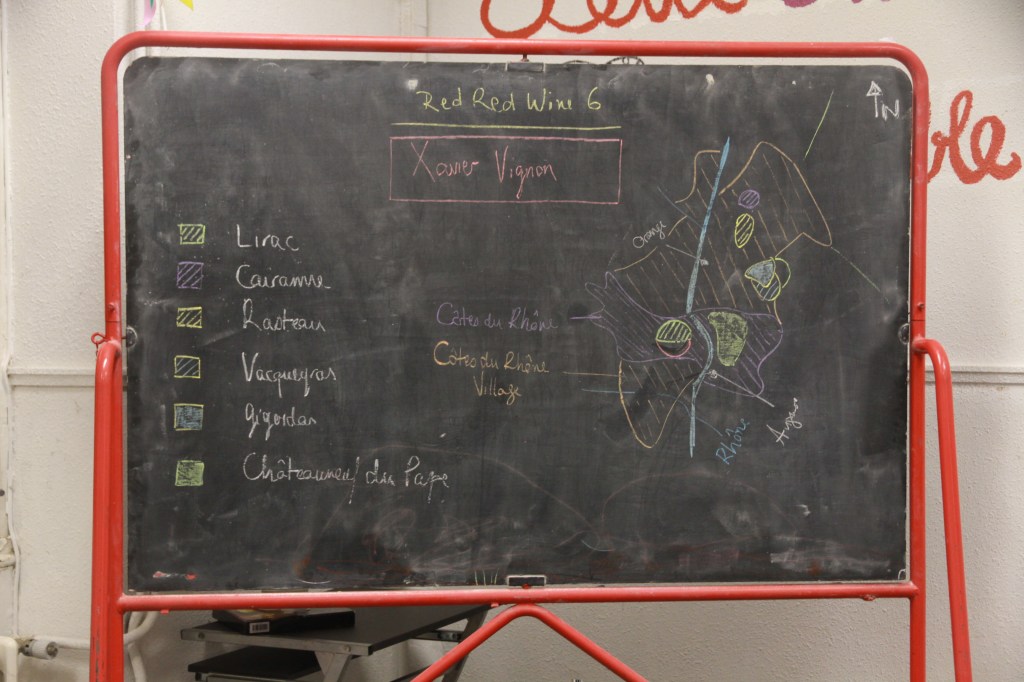 Red Red Wine 6
Xavier Vignon
N
Orange
Lirac
Cairanne
Rasteau
Vacqueyras
Gigondas
Châteauneuf du Pape
Côtes du Rhône
Côtes du Rhône
Village
Rhône